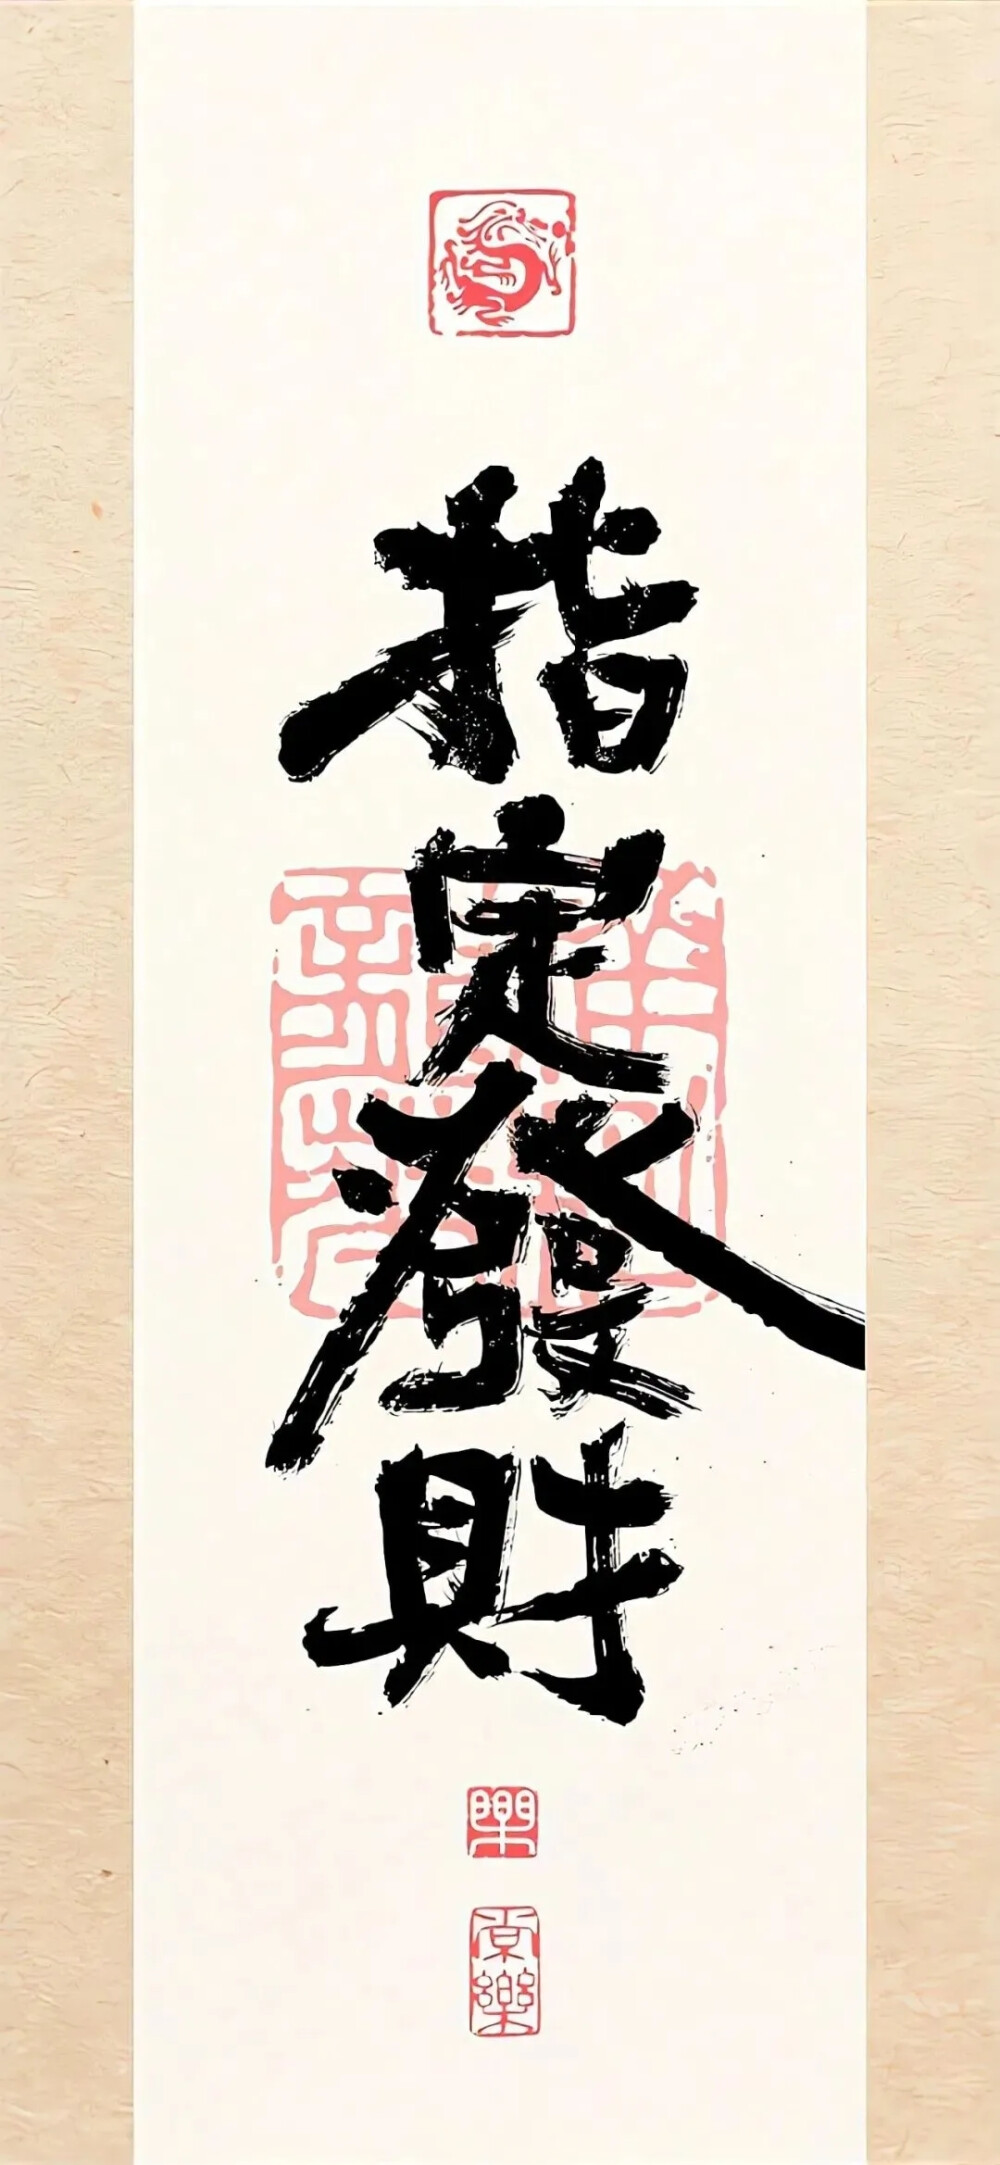 指定發財